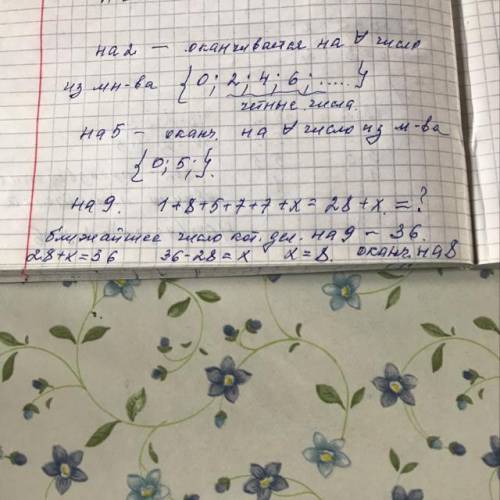 на 2 — оканчивается на ∀ число
из мн-ва {0; 2; 4; 6; .....}
четные числа.
на 5 – оканч. на ∀ число из м-ва
{0; 5;}.
на 9. 1+8+5+7+7+x = 28+x = ?
ближайшее число кот. дел. на 9 – 36.
28+x=56 36-28=x x=8. оканч. на 8